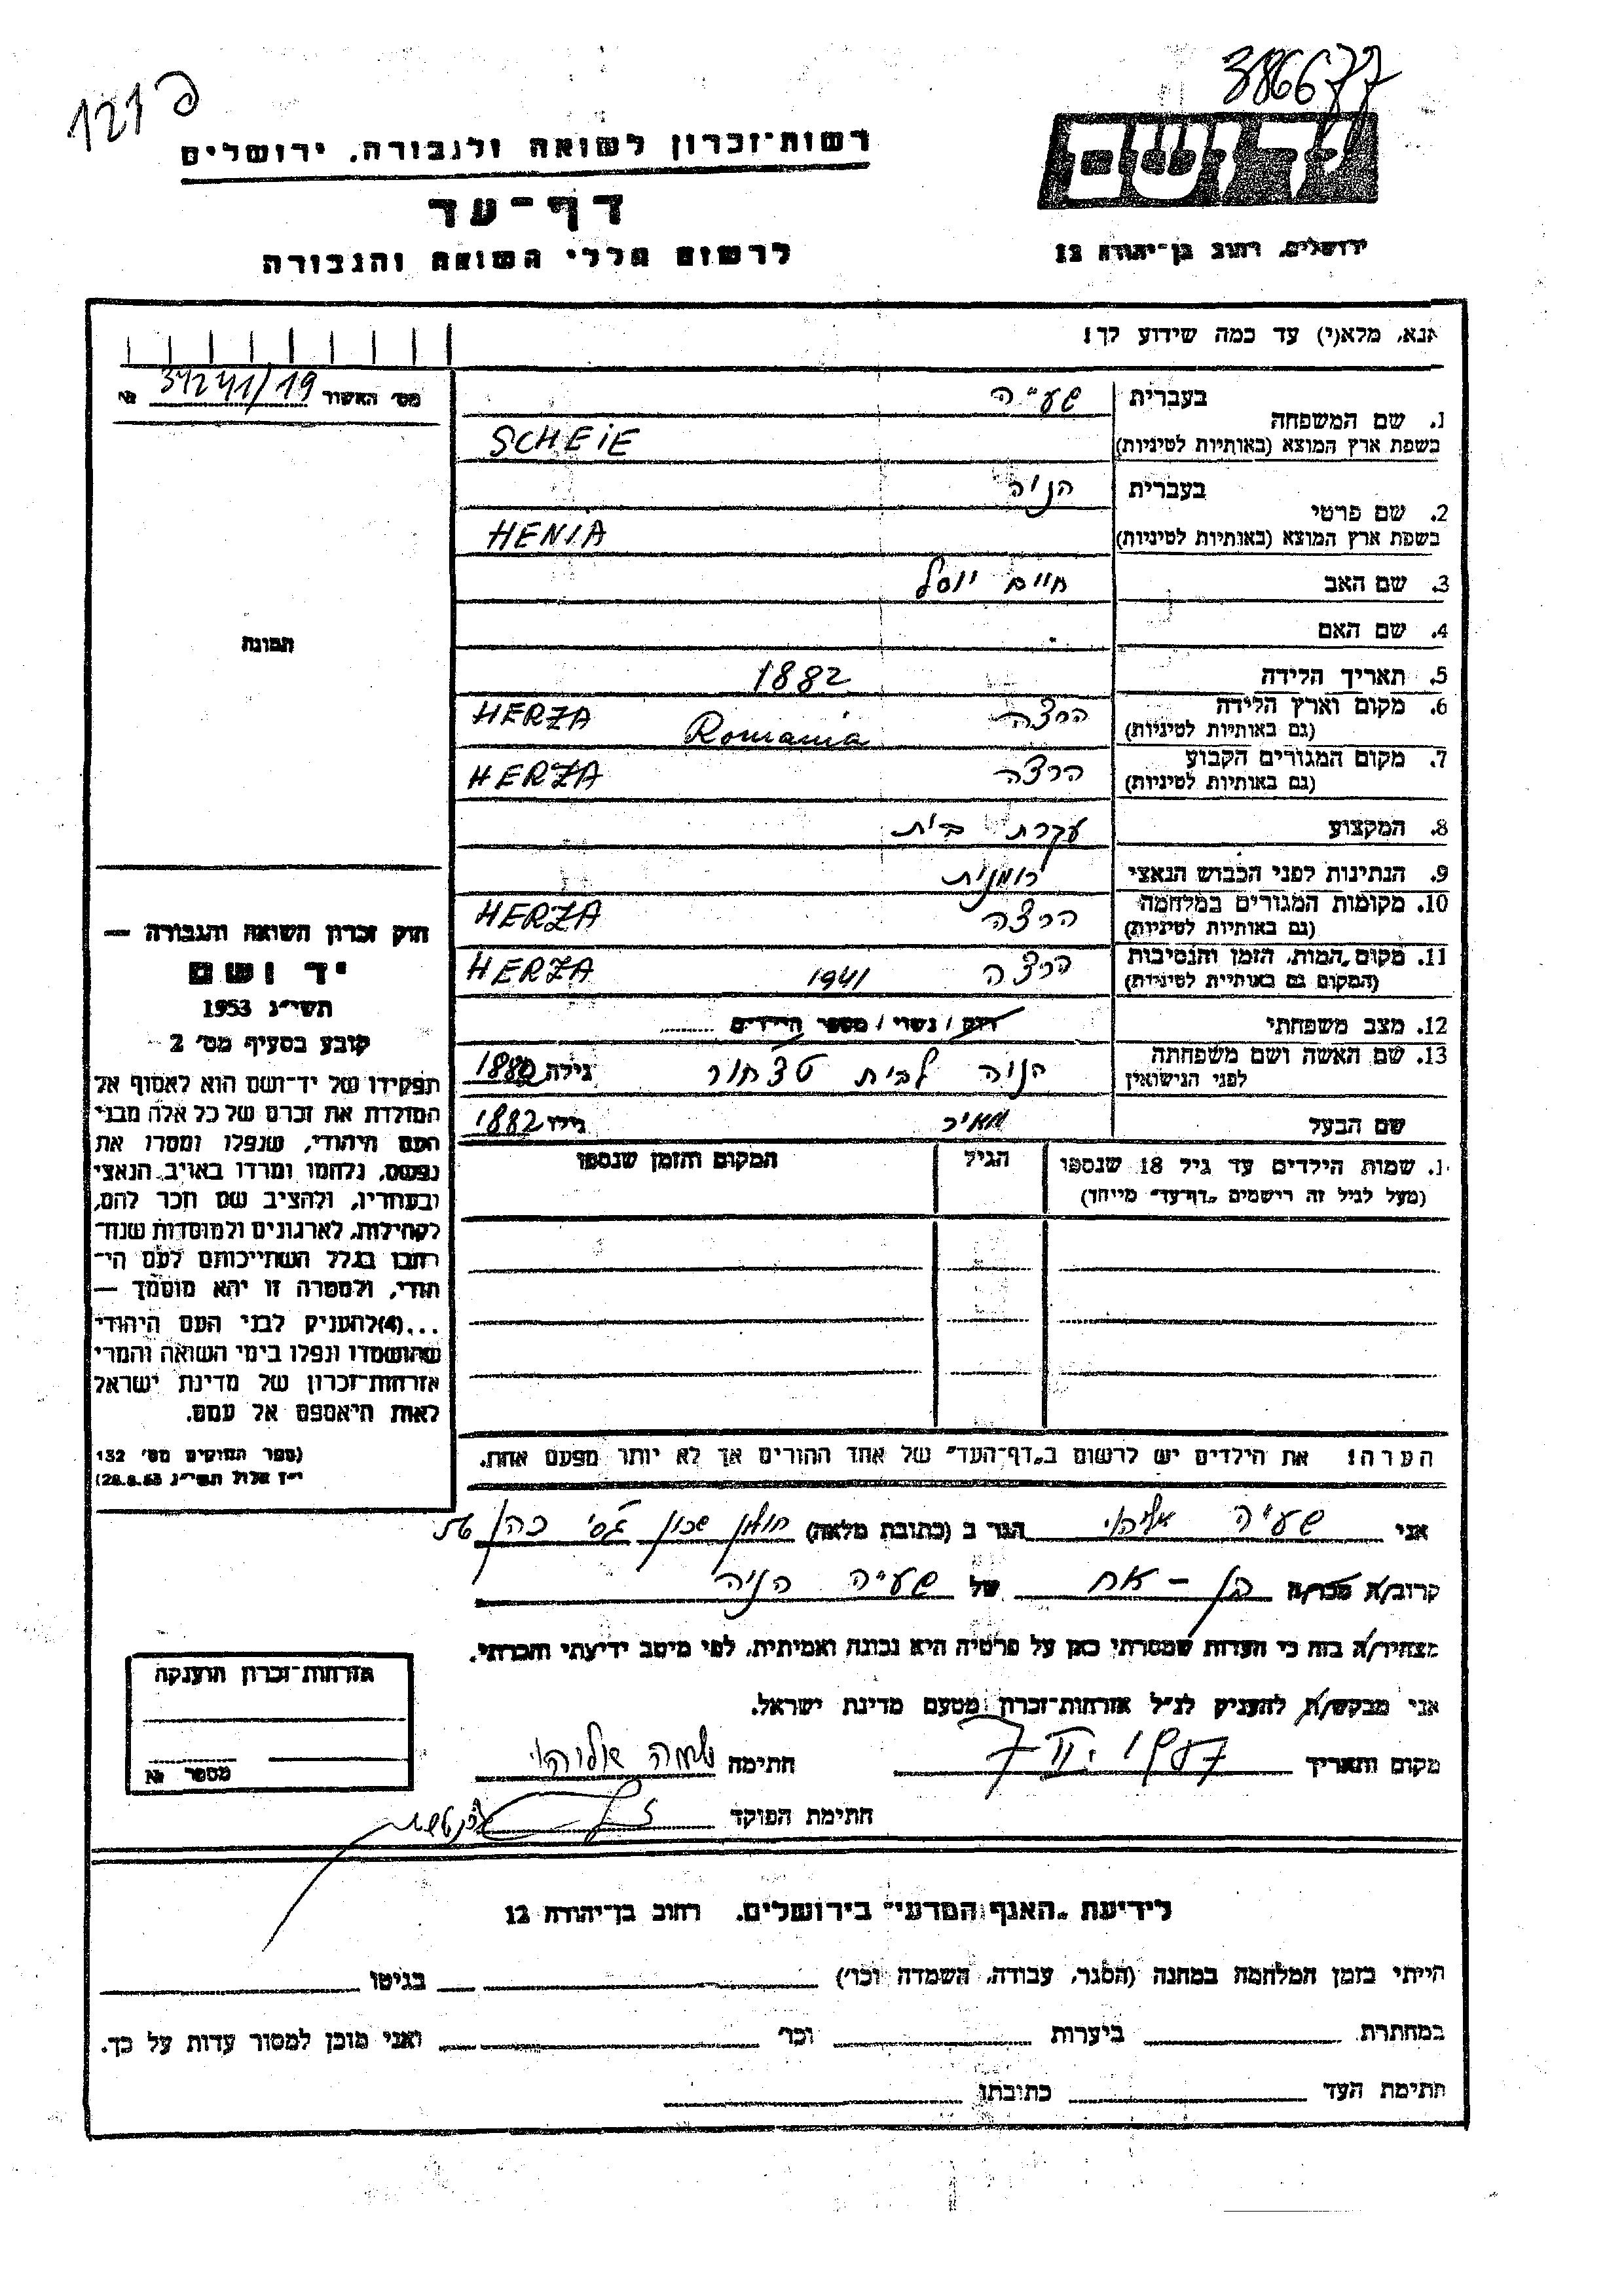 386677
121 פ
יד ושם
רשות־זכרון לשואה ולגבורה, ירושלים
דף־עד
לרשום חללי השואה והגבורה
ירושלים, רחוב בן־יהודה 12
אנא, מלא(י) עד כמה שידוע לך!
מס׳ האשור 34241/19 №
1. שם המשפחה בעברית שעי״ה
בשפת ארץ המוצא (באותיות לטיניות) SCHEiE
2. שם פרטי בעברית הניה
בשפת ארץ המוצא (באותיות לטיניות) HENiA
3. שם האב חיים יוסל
4. שם האם
5. תאריך הלידה 1882
6. מקום וארץ הלידה הרצה Romania HERZA
(גם באותיות לטיניות)
7. מקום המגורים הקבוע הרצה HERZA
(גם באותיות לטיניות)
8. המקצוע עקרת בית
9. הנתינות לפני הכבוש הנאצי רומנית
10. מקומות המגורים במלחמה הרצה HERZA
(גם באותיות לטיניות)
11. מקום המות, הזמן והנסיבות הרצה 1941 HERZA
(המקום גם באותיות לטיניות)
12. מצב משפחתי רווק / נשוי / מספר הילדים
13. שם האשה ושם משפחתה הניה לבית גילה 1880
לפני הנישואין
שם הבעל מאיר גילו 1882
1. שמות הילדים עד גיל 18 שנספו הגיל המקום והזמן שנספו
(מעל לגיל זה רישמים „דף־עד״ מייחד)
הערה! את הילדים יש לרשום ב„דף־העד״ של אחד ההורים אך לא יותר מפעם אחת.
תמונה
חוק זכרון השואה והגבורה —
יד ושם
תשי״ג 1953
קובע בסעיף מס׳ 2
תפקידו של יד־ושם הוא לאסוף אל
המולדת את זכרם של כל אלה מבני
העם היהודי, שנפלו ומסרו את
נפשם, נלחמו ומרדו באויב הנאצי
ובעוזריו, ולהציב שם וזכר להם,
לקהילות, לארגונים ולמוסדות שנח־
רבו בגלל השתייכותם לעם הי־
הודי, ולמטרה זו יהא מוסמך —
...(4)להעניק לבני העם היהודי
שהושמדו ונפלו בימי השואה והמרי
אזרחות־זכרון של מדינת ישראל
לאות היאספם אל עמם.
(ספר החוקים מס׳ 132
י״ז אלול תשי״ג 28.8.53)
אני שעי״ה אליהו הגר ב (כתובת מלאה) חולון שכון כהן
קרוב/ה מכר/ה בן־אח של שעי״ה הניה
מצהיר/ה בזה כי העדות שמסרתי כאן על פרטיה היא נכונה ואמיתית, לפי מיטב ידיעתי והכרתי.
אני מבקש/ת להעניק לנ״ל אזרחות־זכרון מטעם מדינת ישראל.
מקום ותאריך 7.II.1957 חתימה שעיה אליהו
חתימת הפוקד
אזרחות־זכרון הוענקה
מספר №
לידיעת „האגף המדעי״ בירושלים, רחוב בן־יהודה 12
הייתי בזמן המלחמה במחנה (הסגר, עבודה, השמדה וכו׳) בגיטו
במחתרת ביערות וכו׳ ואני מוכן למסור עדות על כך.
חתימת העד כתובתו